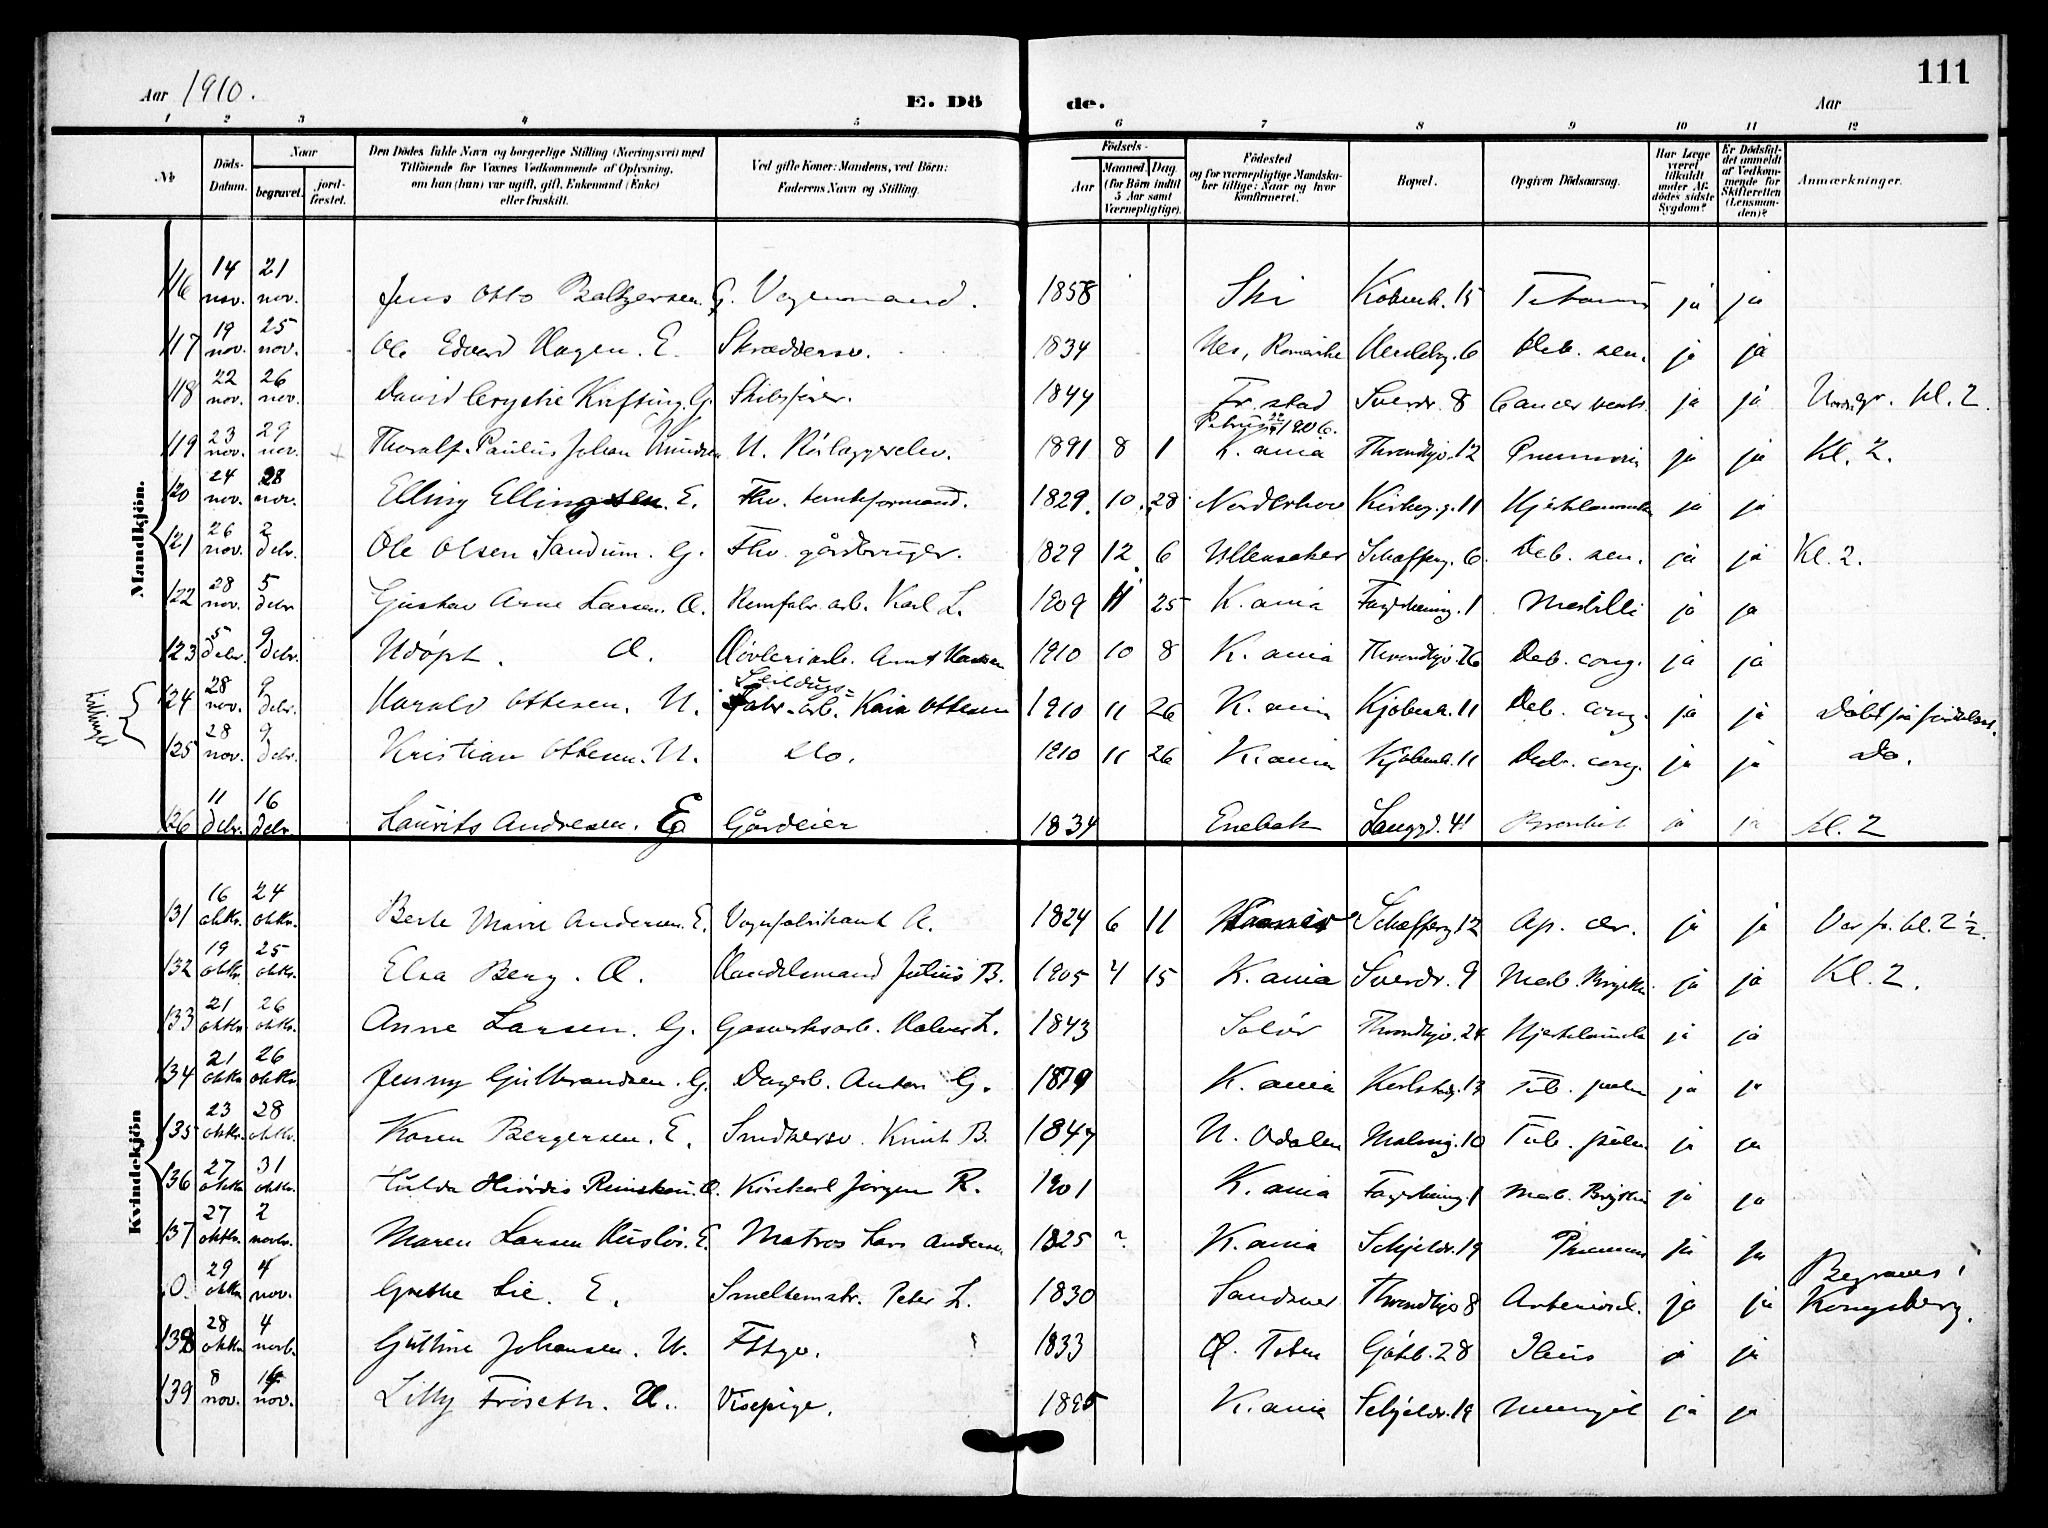 111
Aar 1910. E. Dö de. Aar
1 2 3 4 5 6 7 8 9 10 11 12
No. Döds-Datum. Naar begravet. jordfæstet. Den Dödes fulde Navn og borgerlige Stilling (Næringsvei) med Tilföiende for Voxnes Vedkommende af Oplysning, om han (hun) var ugift, gift, Enkemand (Enke) eller fraskilt. Ved gifte Koner: Mandens, ved Börn: Faderens Navn og Stilling. Födsels- Aar Maaned. Dag. (for Börn indtil 5 Aar samt Værnepligtige). Födested og for værnepligtige Mandskaber tillige: Naar og hvor Konfirmeret. Bopæl. Opgiven Dödsaarsag. Har Læge været tilkaldt under Afdödes sidste Sygdom? Er Dödsfaldet anmeldt af Vedkommende for Skifteretten (Lensmanden)? Anmærkninger.
Mandkjön.
116 14 nov. 21 nov. Jens Otto Baltzersen. G. Vognmand. 1858 Ski Kóbenh. 15 ja ja
117 19 nov. 25 nov. Ole Edvard Hagen. E. Skræddersv. 1834 Nes, Romerike 6 Deb. sen. ja ja
118 22 nov. 26 nov. David Crystie Krefting. G. Skibsfører. 1844 Fr.stad Sverdr. 8 Cancer ventr. ja ja Nordgr. kl. 2.
119 23 nov. 29 nov. Thoralf Paulus Johan U. Rórlæggerelev. 1891 8 1 Petrus 1906. K.ania Throndhjv. 12 Pneumoni ja ja Kl. 2.
120 24 nov. 28 nov. Elling Ellingsen. E. Fhv. formand. 1829. 10 28 Norderhov Kirkeg.g. 11 ja ja
121 26 nov. 2 debr. Ole Olsen Sandum. G. Fhv. gårdbruger. 1829 12 6 Ullensaker Schafferg. 6. Deb. sen. ja ja Kl. 2.
122 28 nov. 5 debr. Gustav Arne Larsen. Æ. Remfabr. arb. Karl L. 1909 11 25 K.ania Fagerheimg. 1 Morbilli ja ja
123 5 debr. 9 debr. Udópt. Æ. Hóvleriarb. Arnt Hansen 1910 10 8 K.ania Throndhjv. 76 Deb. cong. ja ja
Tvillinger
124 28 nov. 9 debr. Harald Ottesen. U. Seildugs-fabr. arb. Kaia Ottesen 1910 11 26 K.ania Kjóbenh. 11 Deb. cong. ja ja Dóbt på fódselsst.
125 28 nov. 9 debr. Kristian Ottesen. U. Do. 1910 11 26 K.ania Kjóbenh. 11 Deb. cong. ja ja Do.
126 11 debr. 16 debr. Laurits Andresen. E Gårdeier 1834 Enebak Langgd. 41 Bronkit ja ja kl. 2
Kvindekjön
131 16 oktbr. 24 oktbr. Berte Marie Andersen. E. Vognfabrikant A. 1824 6 11 Schafferg. 12 Ap. cer. ja ja Vor fr. kl. 2 ½.
132 19 oktbr. 25 oktbr. Elsa Berg. Æ. Handelsmand Julius B. 1905 4 15 K.ania Sverdr. 9 Morb. Brightii ja ja Kl. 2.
133 21 oktbr. 26 oktbr. Anne Larsen. G. Gasverksarb. Halvor L. 1843 Solór Throndhjv. 24 Hjertelammelse ja ja
134 21 oktbr. 26 oktbr. Jenny Gulbrandsen. G. Dagarb. Anton G. 1879 K.ania Karlstadg. 13 Tub. pulm ja ja
135 23 oktbr. 28 oktbr. Karen Bergersen. E. Snedkersv. Knut B. 1847 N. Odalen Malmög. 10 Tub. pulm. ja ja
136 27 oktbr. 31 oktbr. Hulda Hiórdis Æ. Kórekarl Jórgen R. 1901 K.ania Fagerheimg. 1 Morb. Brightii ja ja
137 27 oktbr. 2 novbr. Maren Larsen E. Matros Lars Andersen. 1825 ? K.ania Schjeldr. 19 Pneumoni ja ja
0. 29 oktbr. 4 nov. Grethe Lie. E. Smeltemstr. Peter L. 1830 Sandsver Throndhjv. 8 Arteriosl. ja ja Begraves i Kongsberg.
138 28 oktbr. 4 novb. Guttine Johansen. U. Fttgv. 1833 Ø. Toten Gótb. 28 Ileus ja ja
139 8 nov. 14 nov. Lilly Fróseth. U. Visepige. 1895 K.ania Schjeldr. 19 Meningit ja ja